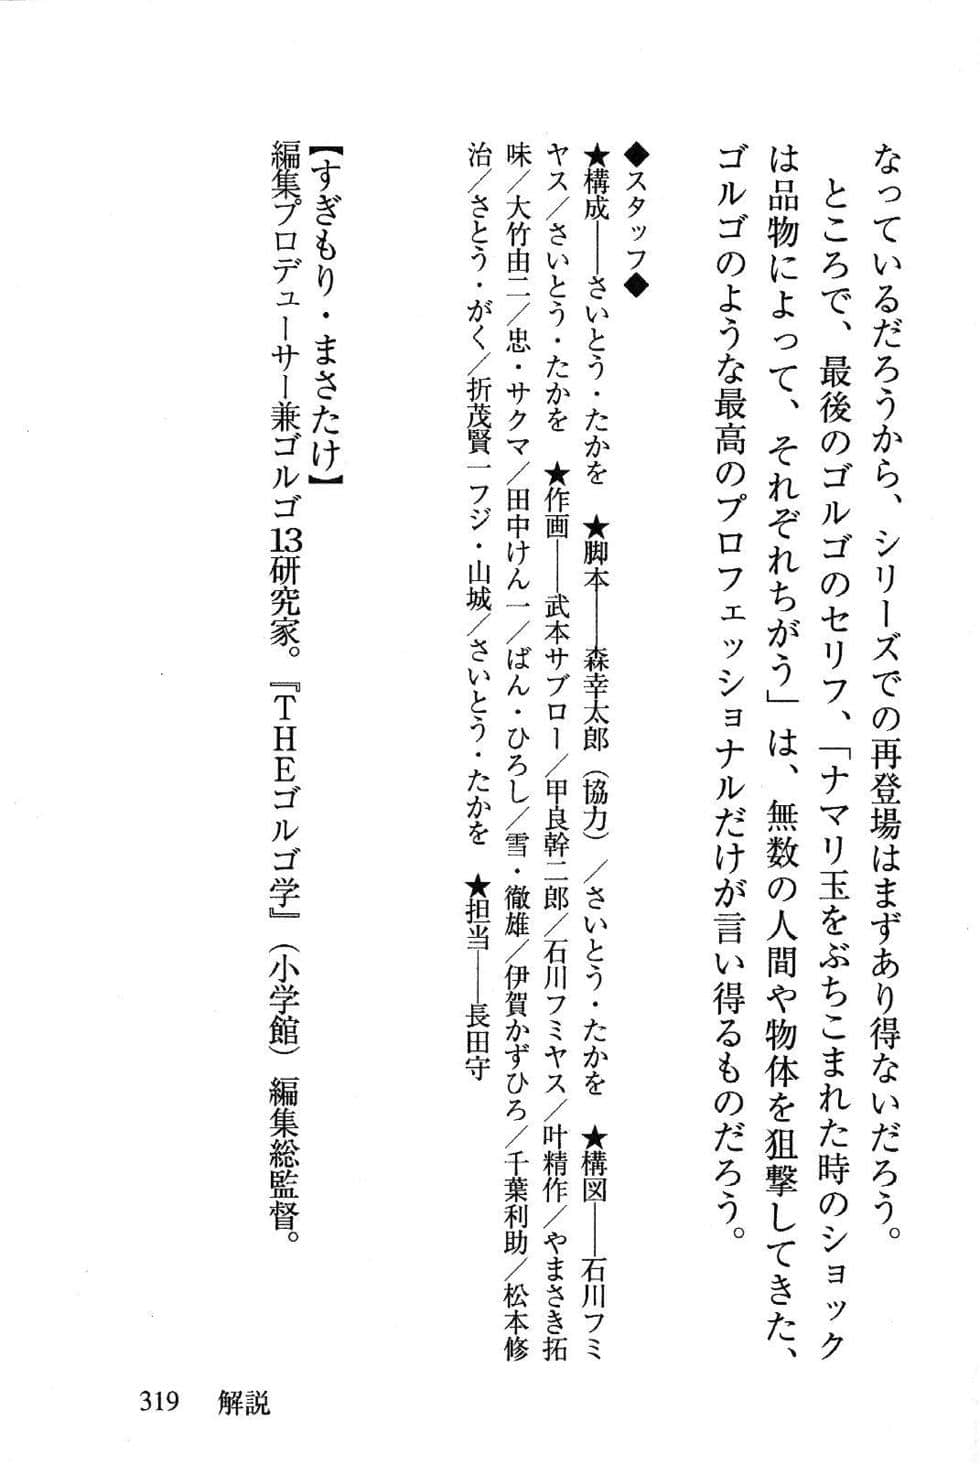 なっているだろうから、シリーズでの再登場はまずあり得ないだろう。
ところで、最後のゴルゴのセリフ、「ナマリ玉をぶちこまれた時のショック
は品物によって、それぞれちがう」は、無数の人間や物体を狙撃してきた、
ゴルゴのような最高のプロフェッショナルだけが言い得るものだろう。
◆スタッフ◆
★構成──さいとう・たかを　★脚本──森幸太郎（協力）／さいとう・たかを　★構図──石川フミ
ヤス／さいとう・たかを　★作画──武本サブロー／甲良幹二郎／石川フミヤス／叶精作／やまさき拓
味／大竹由二／忠・サクマ／田中けん一／ばん・ひろし／雪・徹雄／伊賀かずひろ／千葉利助／松本修
治／さとう・がく／折茂賢一フジ・山城／さいとう・たかを　★担当──長田守
【すぎもり・まさたけ】
編集プロデューサー兼ゴルゴ13研究家。『THEゴルゴ学』（小学館）編集総監督。
319　解説